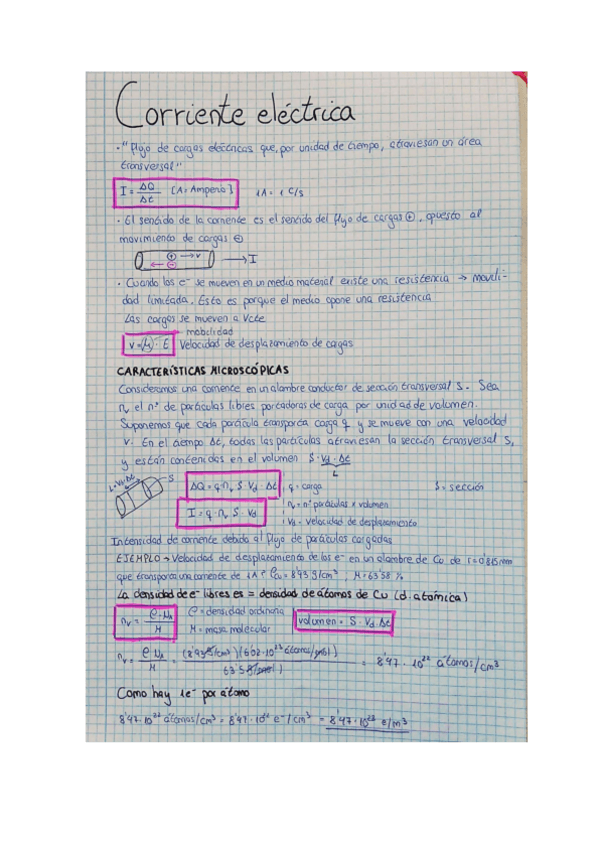 Corriente eléctrica
· "Flujo de cargas eléctricas que, por unidad de tiempo, atraviesan un área
transversal"
I = ΔQ/Δt [A = Amperio] 1A = 1 C/s
· El sentido de la corriente es el sentido del flujo de cargas ⊕, opuesto al
movimiento de cargas ⊖
⊕ → v
← ⊖
→ I
· Cuando los e⁻ se mueven en un medio material existe una resistencia → movili-
dad limitada. Esto es porque el medio opone una resistencia
Las cargas se mueven a Vcte
mobilidad
v = (μ) · E Velocidad de desplazamiento de cargas
CARACTERÍSTICAS MICROSCÓPICAS
Consideramos una corriente en un alambre conductor de sección transversal S. Sea
nᵥ el nº de partículas libres portadoras de carga por unidad de volumen.
Suponemos que cada partícula transporta carga q y se mueve con una velocidad
v. En el tiempo Δt, todas las partículas atraviesan la sección transversal S,
y están contenidas en el volumen S · Vd · Δt
L
L = Vd · Δt
S
ΔQ = q · nᵥ S · Vd · Δt
q = carga
S = sección
I = q · nᵥ S · Vd
nᵥ = nº partículas x volumen
Vd = velocidad de desplazamiento
Intensidad de corriente debido al flujo de partículas cargadas
EJEMPLO → Velocidad de desplazamiento de los e⁻ en un alambre de Cu de r = 0'815mm
que transporta una corriente de 1A ρCu = 8'93 g/cm³ , M = 63'58
La densidad de e⁻ libres es = densidad de átomos de Cu (d. atómica)
nᵥ = ρ · NA / M
ρ = densidad ordinaria
M = masa molecular
volumen = S · Vd · Δt
nᵥ = ρ · NA / M = (8'93 g/cm³)(6'02 · 10²³ átomos/mol) / 63'5 g/mol = 8'47 · 10²² átomos/cm³
Como hay 1e⁻ por átomo
8'47 · 10²² átomos/cm³ = 8'47 · 10²² e⁻/cm³ = 8'47 · 10²³ e/m³